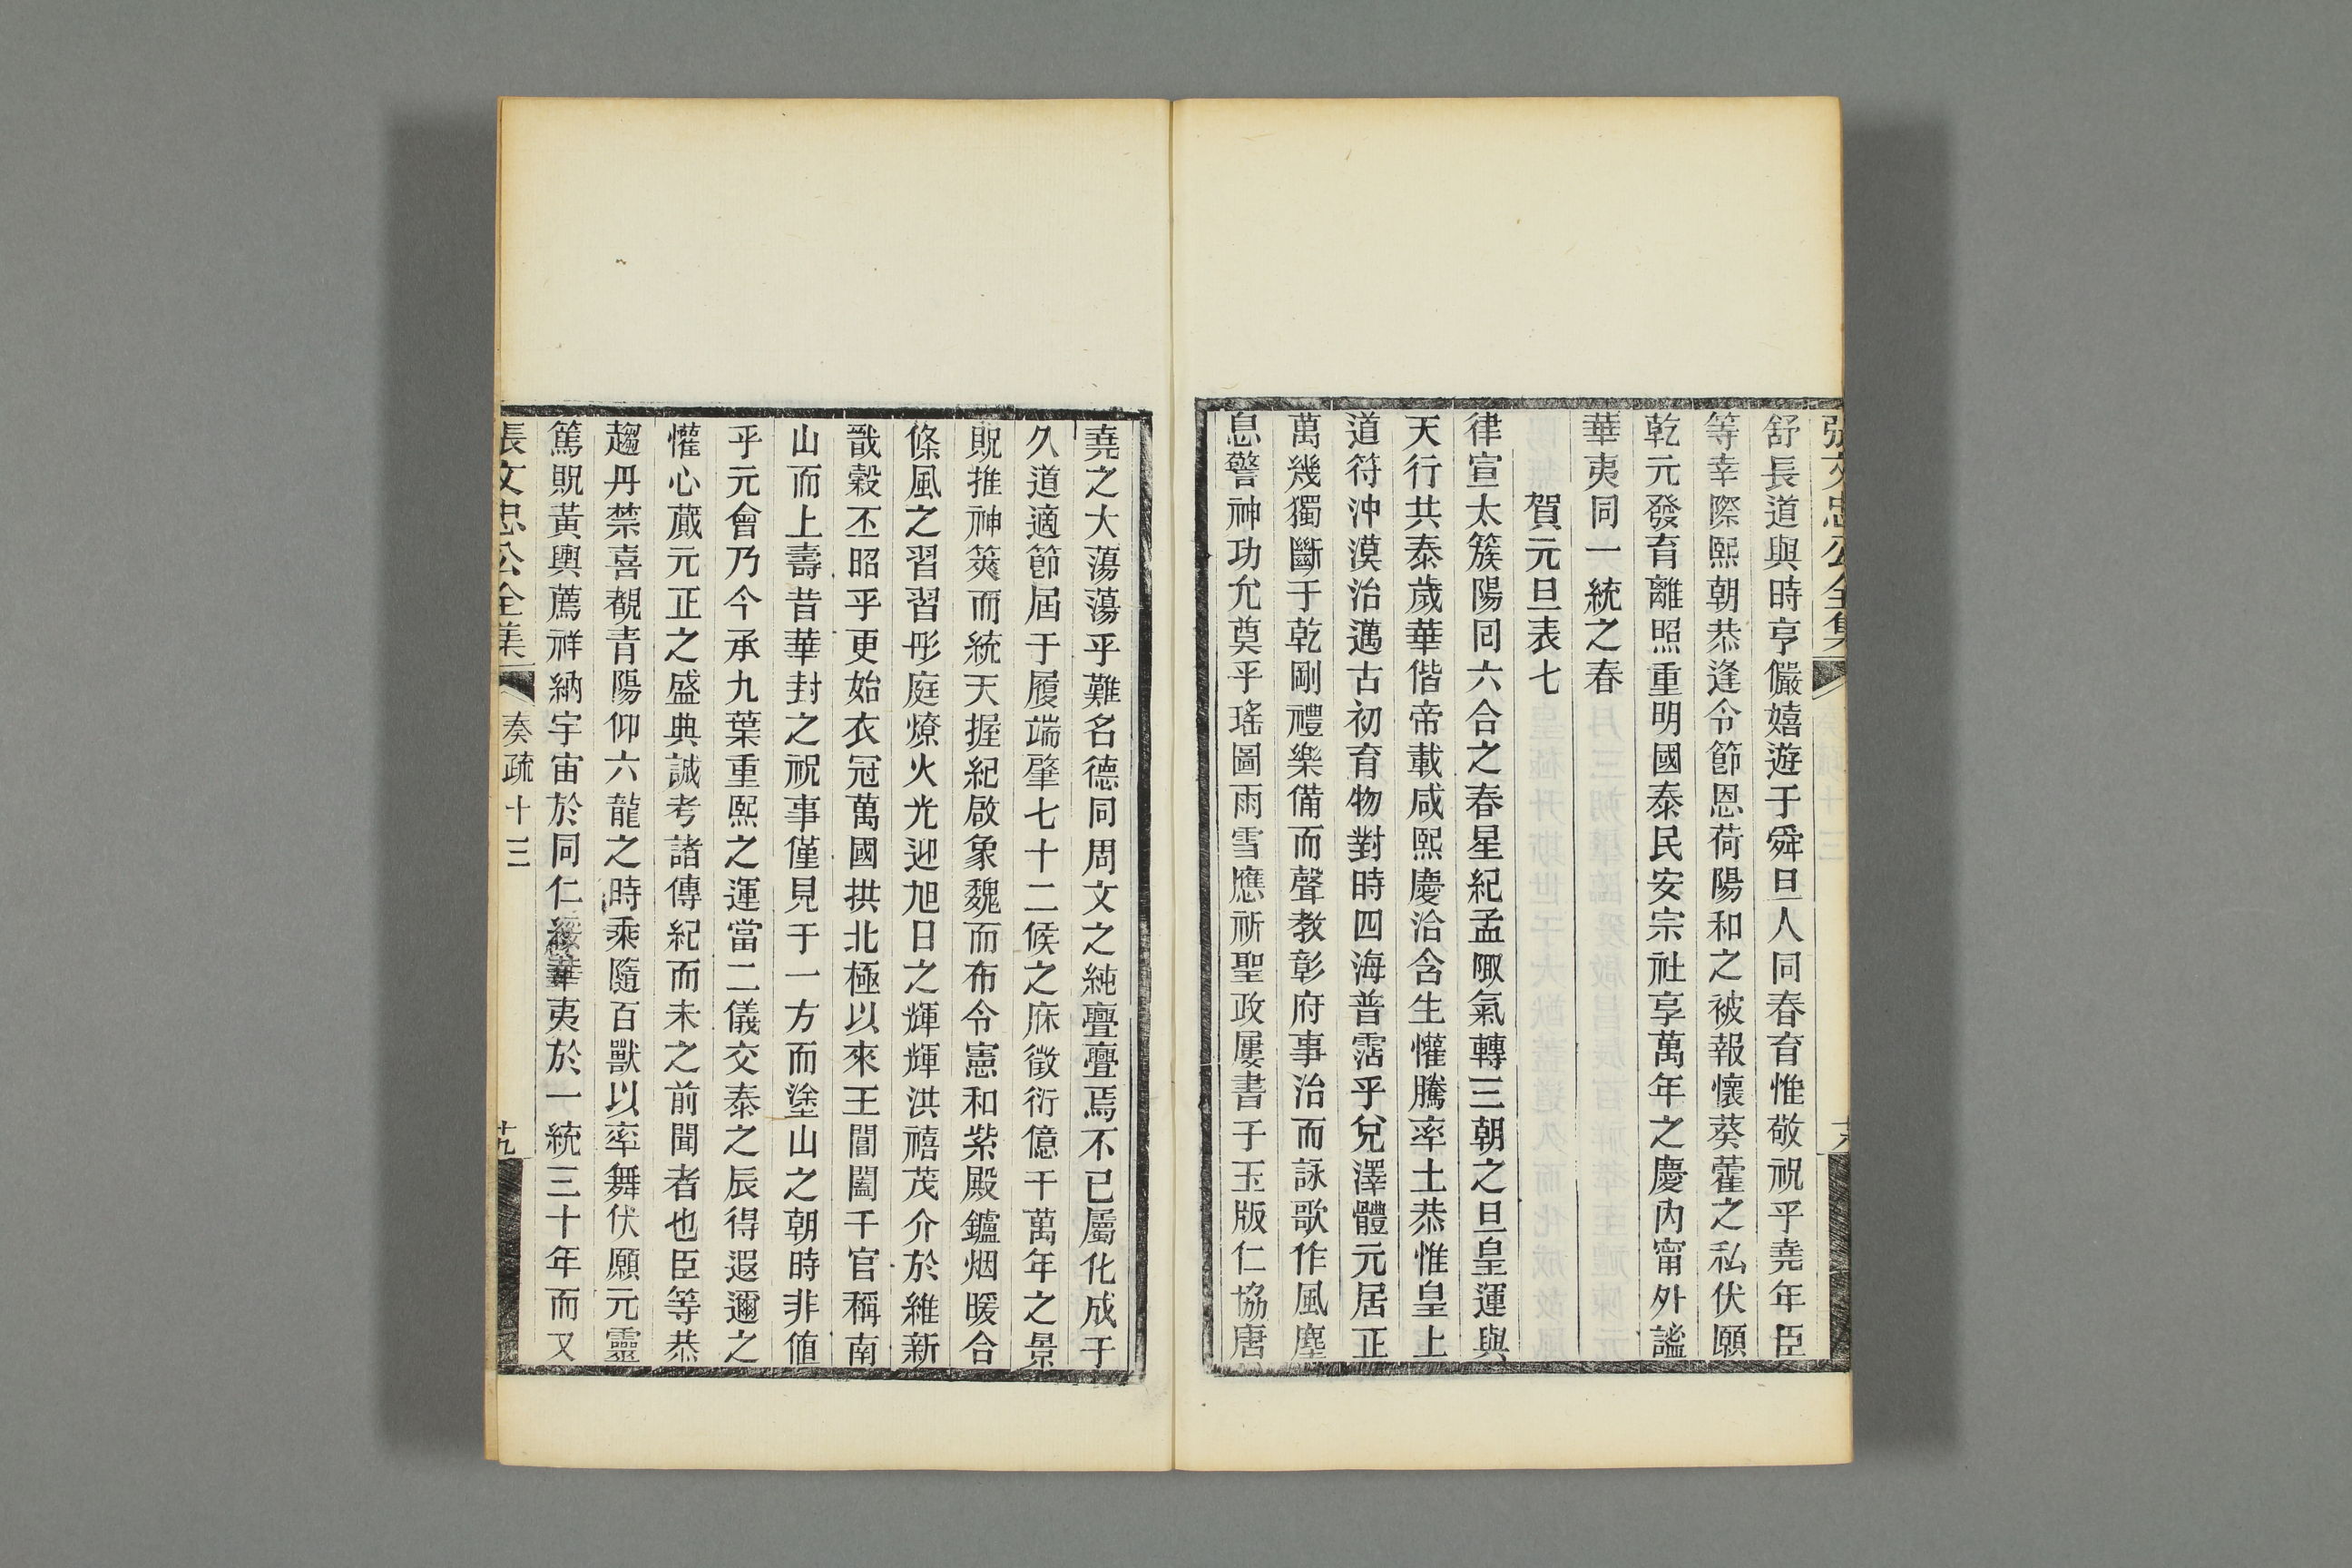 張文忠公全集
舒長道與時亨儼嬉遊于舜日人同春育惟敬祝乎堯年臣
等幸際熙朝恭逢令節恩荷陽和之被報懷葵藿之私伏願
乾元發育離照重明國泰民安宗社享萬年之慶內甯外謐
華夷同一統之春
賀元旦表七
律宣太簇陽回六合之春星紀孟陬氣轉三朝之旦皇運與
天行共泰歲華偕帝載咸熙慶洽含生懽騰率土恭惟皇上
道符沖漠治邁古初育物對時四海普霑乎兌澤體元居正
萬幾獨斷于乾剛禮樂備而聲教彰府事治而詠歌作風塵
息警神功允奠乎瑤圖雨雪應祈聖政屢書于玉版仁協唐
堯之大蕩蕩乎難名德同周文之純亹亹焉不已屬化成于
久道適節屆于履端肇七十二候之庥徵衍億千萬年之景
貺推神筴而統天握紀啟象魏而布令憲和紫殿鑪烟暖合
條風之習習彤庭燎火光迎旭日之輝輝洪禧茂介於維新
戩穀丕昭乎更始衣冠萬國拱北極以來王閶闔千官稱南
山而上壽昔華封之祝事僅見于一方而塗山之朝時非値
乎元會乃今承九葉重熙之運當二儀交泰之辰得遐邇之
懽心蕆元正之盛典誠考諸傳紀而未之前聞者也臣等恭
趨丹禁喜覩青陽仰六龍之時乘隨百獸以率舞伏願元靈
篤貺黃輿薦祥納宇宙於同仁綏華夷於一統三十年而又
張文忠公全集 奏疏十三 廿九